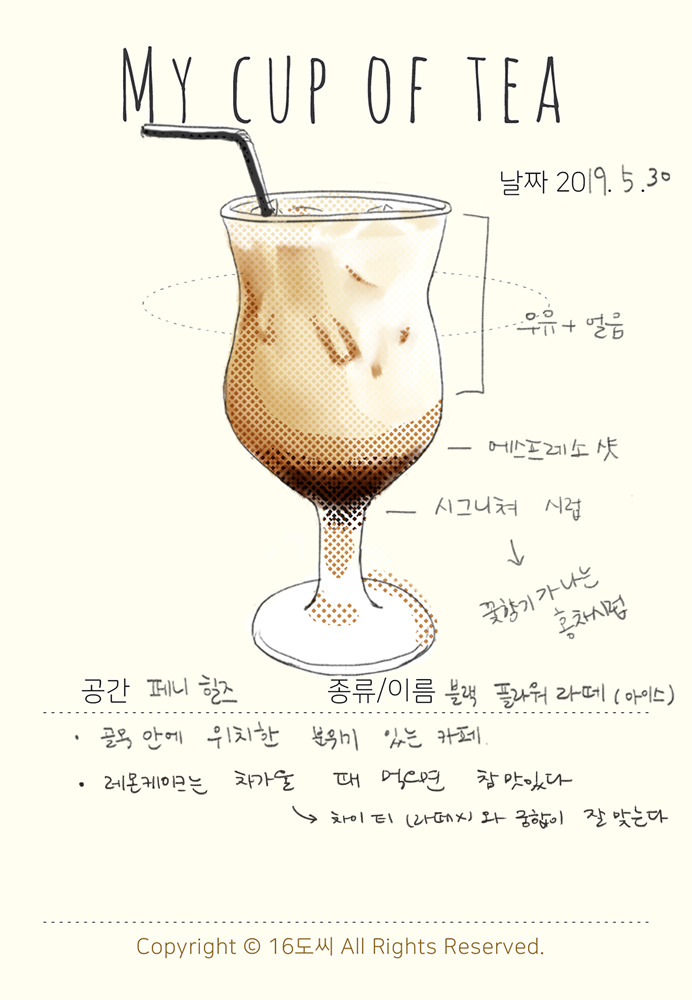 MY CUP OF TEA
날짜 2019. 5 .30
우유 + 얼음
에스프레소 샷
시그니쳐 시럽
↓
꽃향기가 나는
홍차시럽
공간 페니 힐즈 종류/이름 블랙 플라워 라떼 (아이스)
· 골목 안에 위치한 분위기 있는 카페.
· 레몬케이크는 차가울 때 먹으면 참 맛있다
↳ 차이 티 (라떼x) 와 궁합이 잘 맞는다
Copyright © 16도씨 All Rights Reserved.